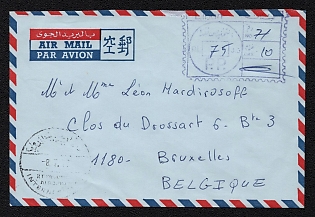 بالبريد الجوي
AIR MAIL
PAR AVION
空郵
75
71
10
Mr et Mme Léon Mardirosoff
Clos du Drossart 6 - Bte 3
1180 - Bruxelles
BELGIQUE